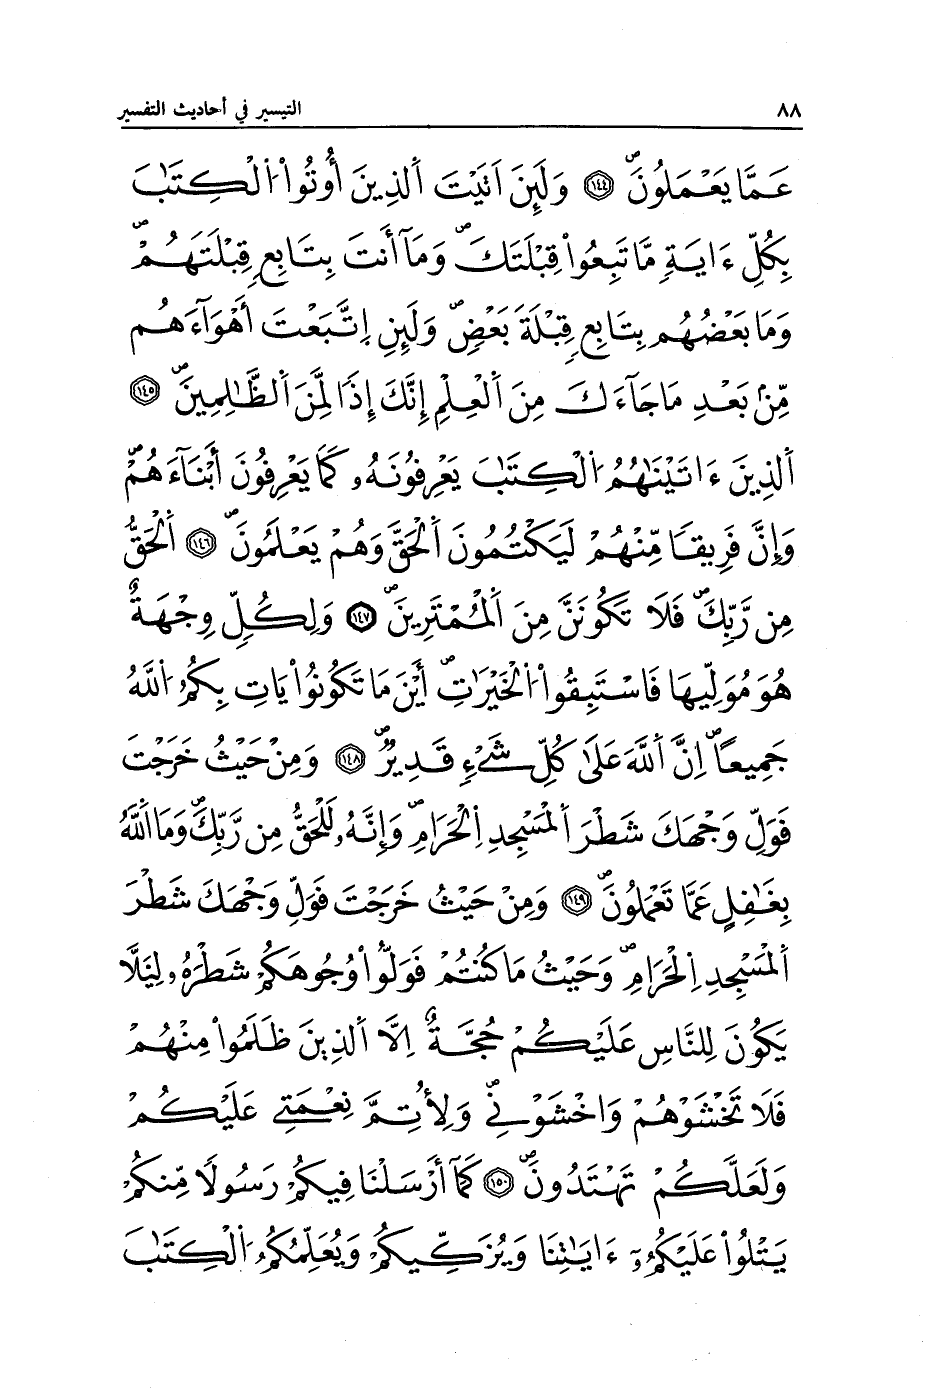 ٨٨ التيسير في أحاديث التفسير
عَمَّا يَعْمَلُونَۖ ﴿١٤٤﴾ وَلَئِنَ اَتَيْتَ اَلذِينَ أُوتُواْ اُلْكِتَٰبَ
بِكُلِّ ءَايَةٖ مَّا تَبِعُواْ قِبْلَتَكَۖ وَمَآ أَنتَ بِتَابِعٖ قِبْلَتَهُمْۖ
وَمَا بَعْضُهُم بِتَابِعٖ قِبْلَةَ بَعْضٖۖ وَلَئِنِ اِتَّبَعْتَ أَهْوَآءَهُم
مِّنۢ بَعْدِ مَا جَآءَكَ مِنَ اَلْعِلْمِ إِنَّكَ إِذاٗ لَّمِنَ اَلظَّٰلِمِينَۖ ﴿١٤٥﴾
اَلذِينَ ءَاتَيْنَٰهُمُ اُلْكِتَٰبَ يَعْرِفُونَهُۥ كَمَا يَعْرِفُونَ أَبْنَآءَهُمْۖ
وَإِنَّ فَرِيقاٗ مِّنْهُمْ لَيَكْتُمُونَ اَلْحَقَّ وَهُمْ يَعْلَمُونَۖ ﴿١٤٦﴾ اَلْحَقُّ
مِن رَّبِّكَۖ فَلَا تَكُونَنَّ مِنَ اَلْمُمْتَرِينَۖ ﴿١٤٧﴾ وَلِكُلّٖ وِجْهَةٌ
هُوَ مُوَلِّيهَا فَاسْتَبِقُواْ اُلْخَيْرَٰتِۖ أَيْنَ مَا تَكُونُواْ يَاتِ بِكُمُ اُللَّهُ
جَمِيعاًۖ اِنَّ اَللَّهَ عَلَىٰ كُلِّ شَےْءٖ قَدِيرٌۖ ﴿١٤٨﴾ وَمِنْ حَيْثُ خَرَجْتَ
فَوَلِّ وَجْهَكَ شَطْرَ اَلْمَسْجِدِ اِلْحَرَامِۖ وَإِنَّهُۥ لَلْحَقُّ مِن رَّبِّكَۖ وَمَا اَللَّهُ
بِغَٰفِلٍ عَمَّا تَعْمَلُونَۖ ﴿١٤٩﴾ وَمِنْ حَيْثُ خَرَجْتَ فَوَلِّ وَجْهَكَ شَطْرَ
اَلْمَسْجِدِ اِلْحَرَامِۖ وَحَيْثُ مَا كُنتُمْ فَوَلُّواْ وُجُوهَكُمْ شَطْرَهُۥ لِيَلَّا
يَكُونَ لِلنَّاسِ عَلَيْكُمْ حُجَّةٌ اِلَّا اَلذِينَ ظَلَمُواْ مِنْهُمْ
فَلَا تَخْشَوْهُمْ وَاخْشَوْنِےۖ وَلِأُتِمَّ نِعْمَتِے عَلَيْكُمْ
وَلَعَلَّكُمْ تَهْتَدُونَۖ ﴿١٥٠﴾ كَمَآ أَرْسَلْنَا فِيكُمْ رَسُولاٗ مِّنكُمْ
يَتْلُواْ عَلَيْكُمُۥٓ ءَايَٰتِنَا وَيُزَكِّيكُمْ وَيُعَلِّمُكُمُ اُلْكِتَٰبَ